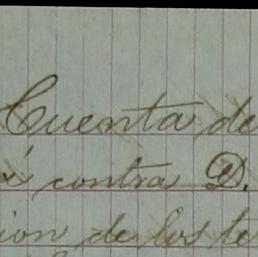 Cuenta de
contra D.
ion de los te